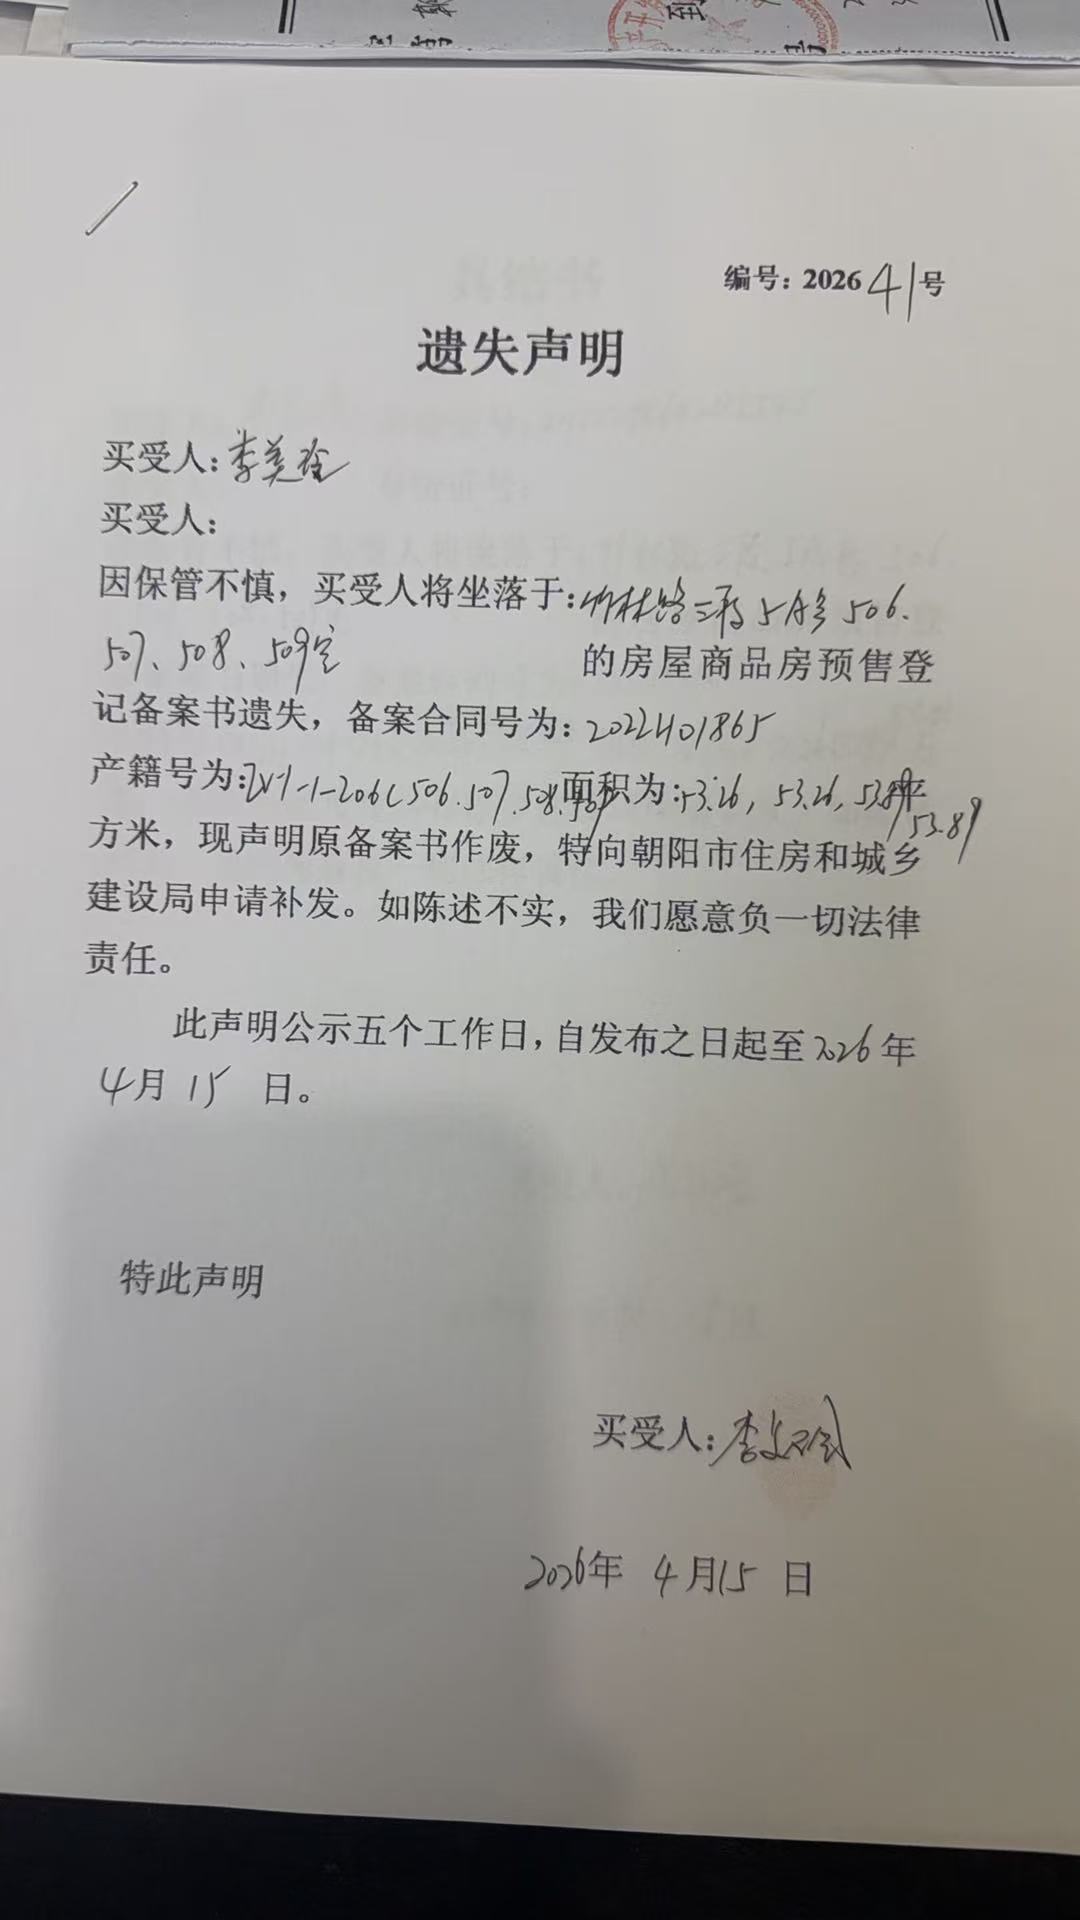 编号：202641号
遗失声明
买受人：李美玲
买受人：
因保管不慎，买受人将坐落于：竹林路三段5A号506.
507、508、509室 的房屋商品房预售登
记备案书遗失，备案合同号为：2022H01865
产籍号为：1-1-206(506.507.508.509 面积为：53.26，53.26，53.89平
53.89
方米，现声明原备案书作废，特向朝阳市住房和城乡
建设局申请补发。如陈述不实，我们愿意负一切法律
责任。
此声明公示五个工作日，自发布之日起至2026年
4月 15 日。
特此声明
买受人：李美玲
2026年 4月15 日